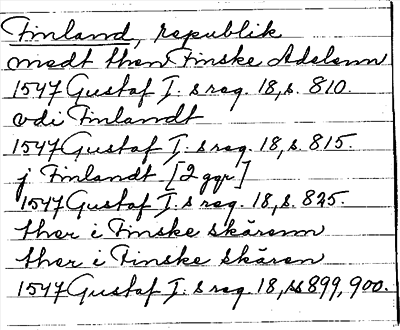 Finland, republik
medt then Finske Adelenn
1547 Gustaf I:s reg. 18, s. 810.
vdi Finlandt
1547 Gustaf I:s reg. 18, s. 815.
j Finlandt [2 ggr]
1547 Gustaf I:s reg. 18, s. 825.
ther i Finske skärenn
ther i Finske skären
1547 Gustaf I:s reg. 18, ss 899, 900.